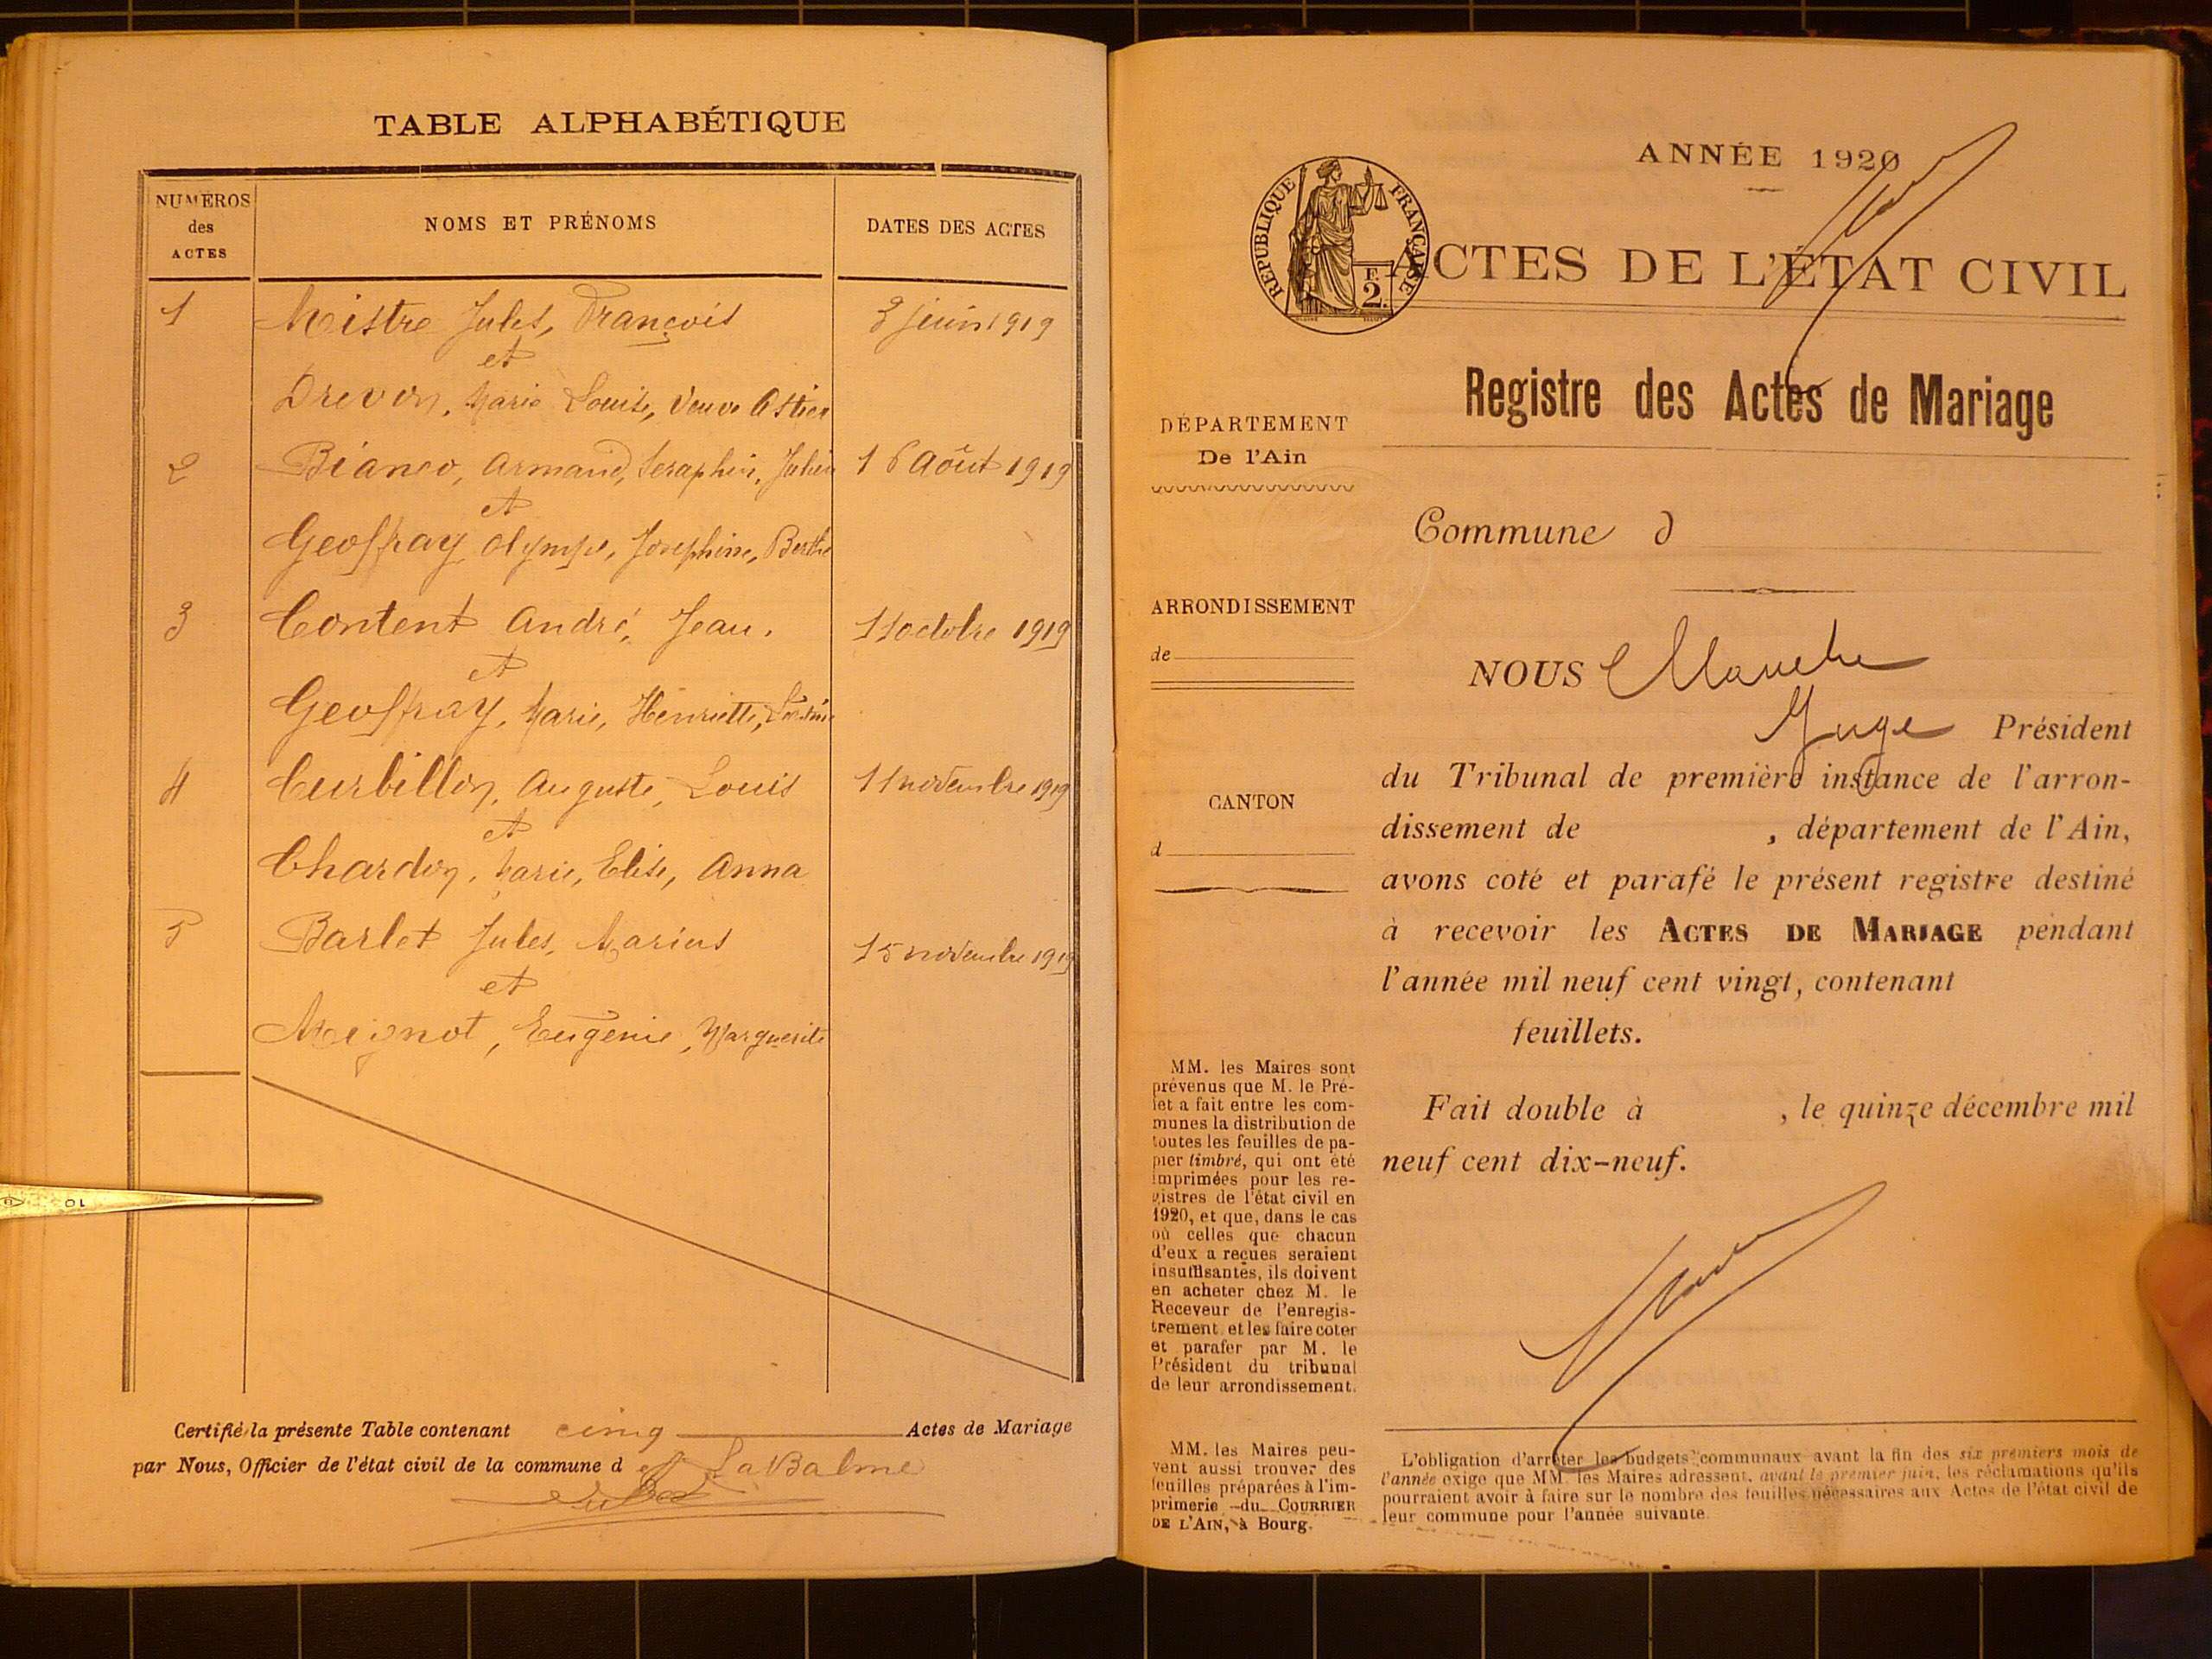 TABLE ALPHABÉTIQUE
NUMÉROS
des
ACTES
NOMS ET PRÉNOMS
DATES DES ACTES
1 Mistre Jules, François 3 juin 1919
et
Drevon, Marie Louise, Veuve Astier
2 Bianco, Armand, Seraphin, Julien 16 Août 1919
et
Geoffray Olympe, Joséphine, Berthe
3 Content André, Jean. 11 octobre 1919
et
Geoffray, Marie, Henriette,
4 Curbillon, Auguste, Louis 11 novembre 1919
et
Chardon, Marie, Elise, Anna
5 Barlet Jules, Marius 15 novembre 1919
et
Mignot, Eugénie, Marguerite
Certifié la présente Table contenant cinq Actes de Mariage
par Nous, Officier de l'état civil de la commune d e La Balme
ANNÉE 1920
RÉPUBLIQUE FRANÇAISE
F.
2.
ACTES DE L'ÉTAT CIVIL
Registre des Actes de Mariage
DÉPARTEMENT
De l'Ain
Commune d
ARRONDISSEMENT
de
CANTON
d
NOUS
Juge Président
du Tribunal de première instance de l'arron-
dissement de , département de l'Ain,
avons coté et parafé le présent registre destiné
à recevoir les ACTES DE MARIAGE pendant
l'année mil neuf cent vingt, contenant
feuillets.
Fait double à , le quinze décembre mil
neuf cent dix-neuf.
MM. les Maires sont
prévenus que M. le Pré-
fet a fait entre les com-
munes la distribution de
toutes les feuilles de pa-
pier timbré, qui ont été
imprimées pour les re-
gistres de l'état civil en
1920, et que, dans le cas
où celles que chacun
d'eux a reçues seraient
insuffisantes, ils doivent
en acheter chez M. le
Receveur de l'enregis-
trement et les faire coter
et parafer par M. le
Président du tribunal
de leur arrondissement.
MM. les Maires peu-
vent aussi trouver des
feuilles préparées à l'im-
primerie du COURRIER
DE L'AIN, à Bourg.
L'obligation d'arrêter les budgets communaux avant la fin des six premiers mois de
l'année exige que MM. les Maires adressent, avant le premier juin, les réclamations qu'ils
pourraient avoir à faire sur le nombre des feuilles nécessaires aux Actes de l'état civil de
leur commune pour l'année suivante.